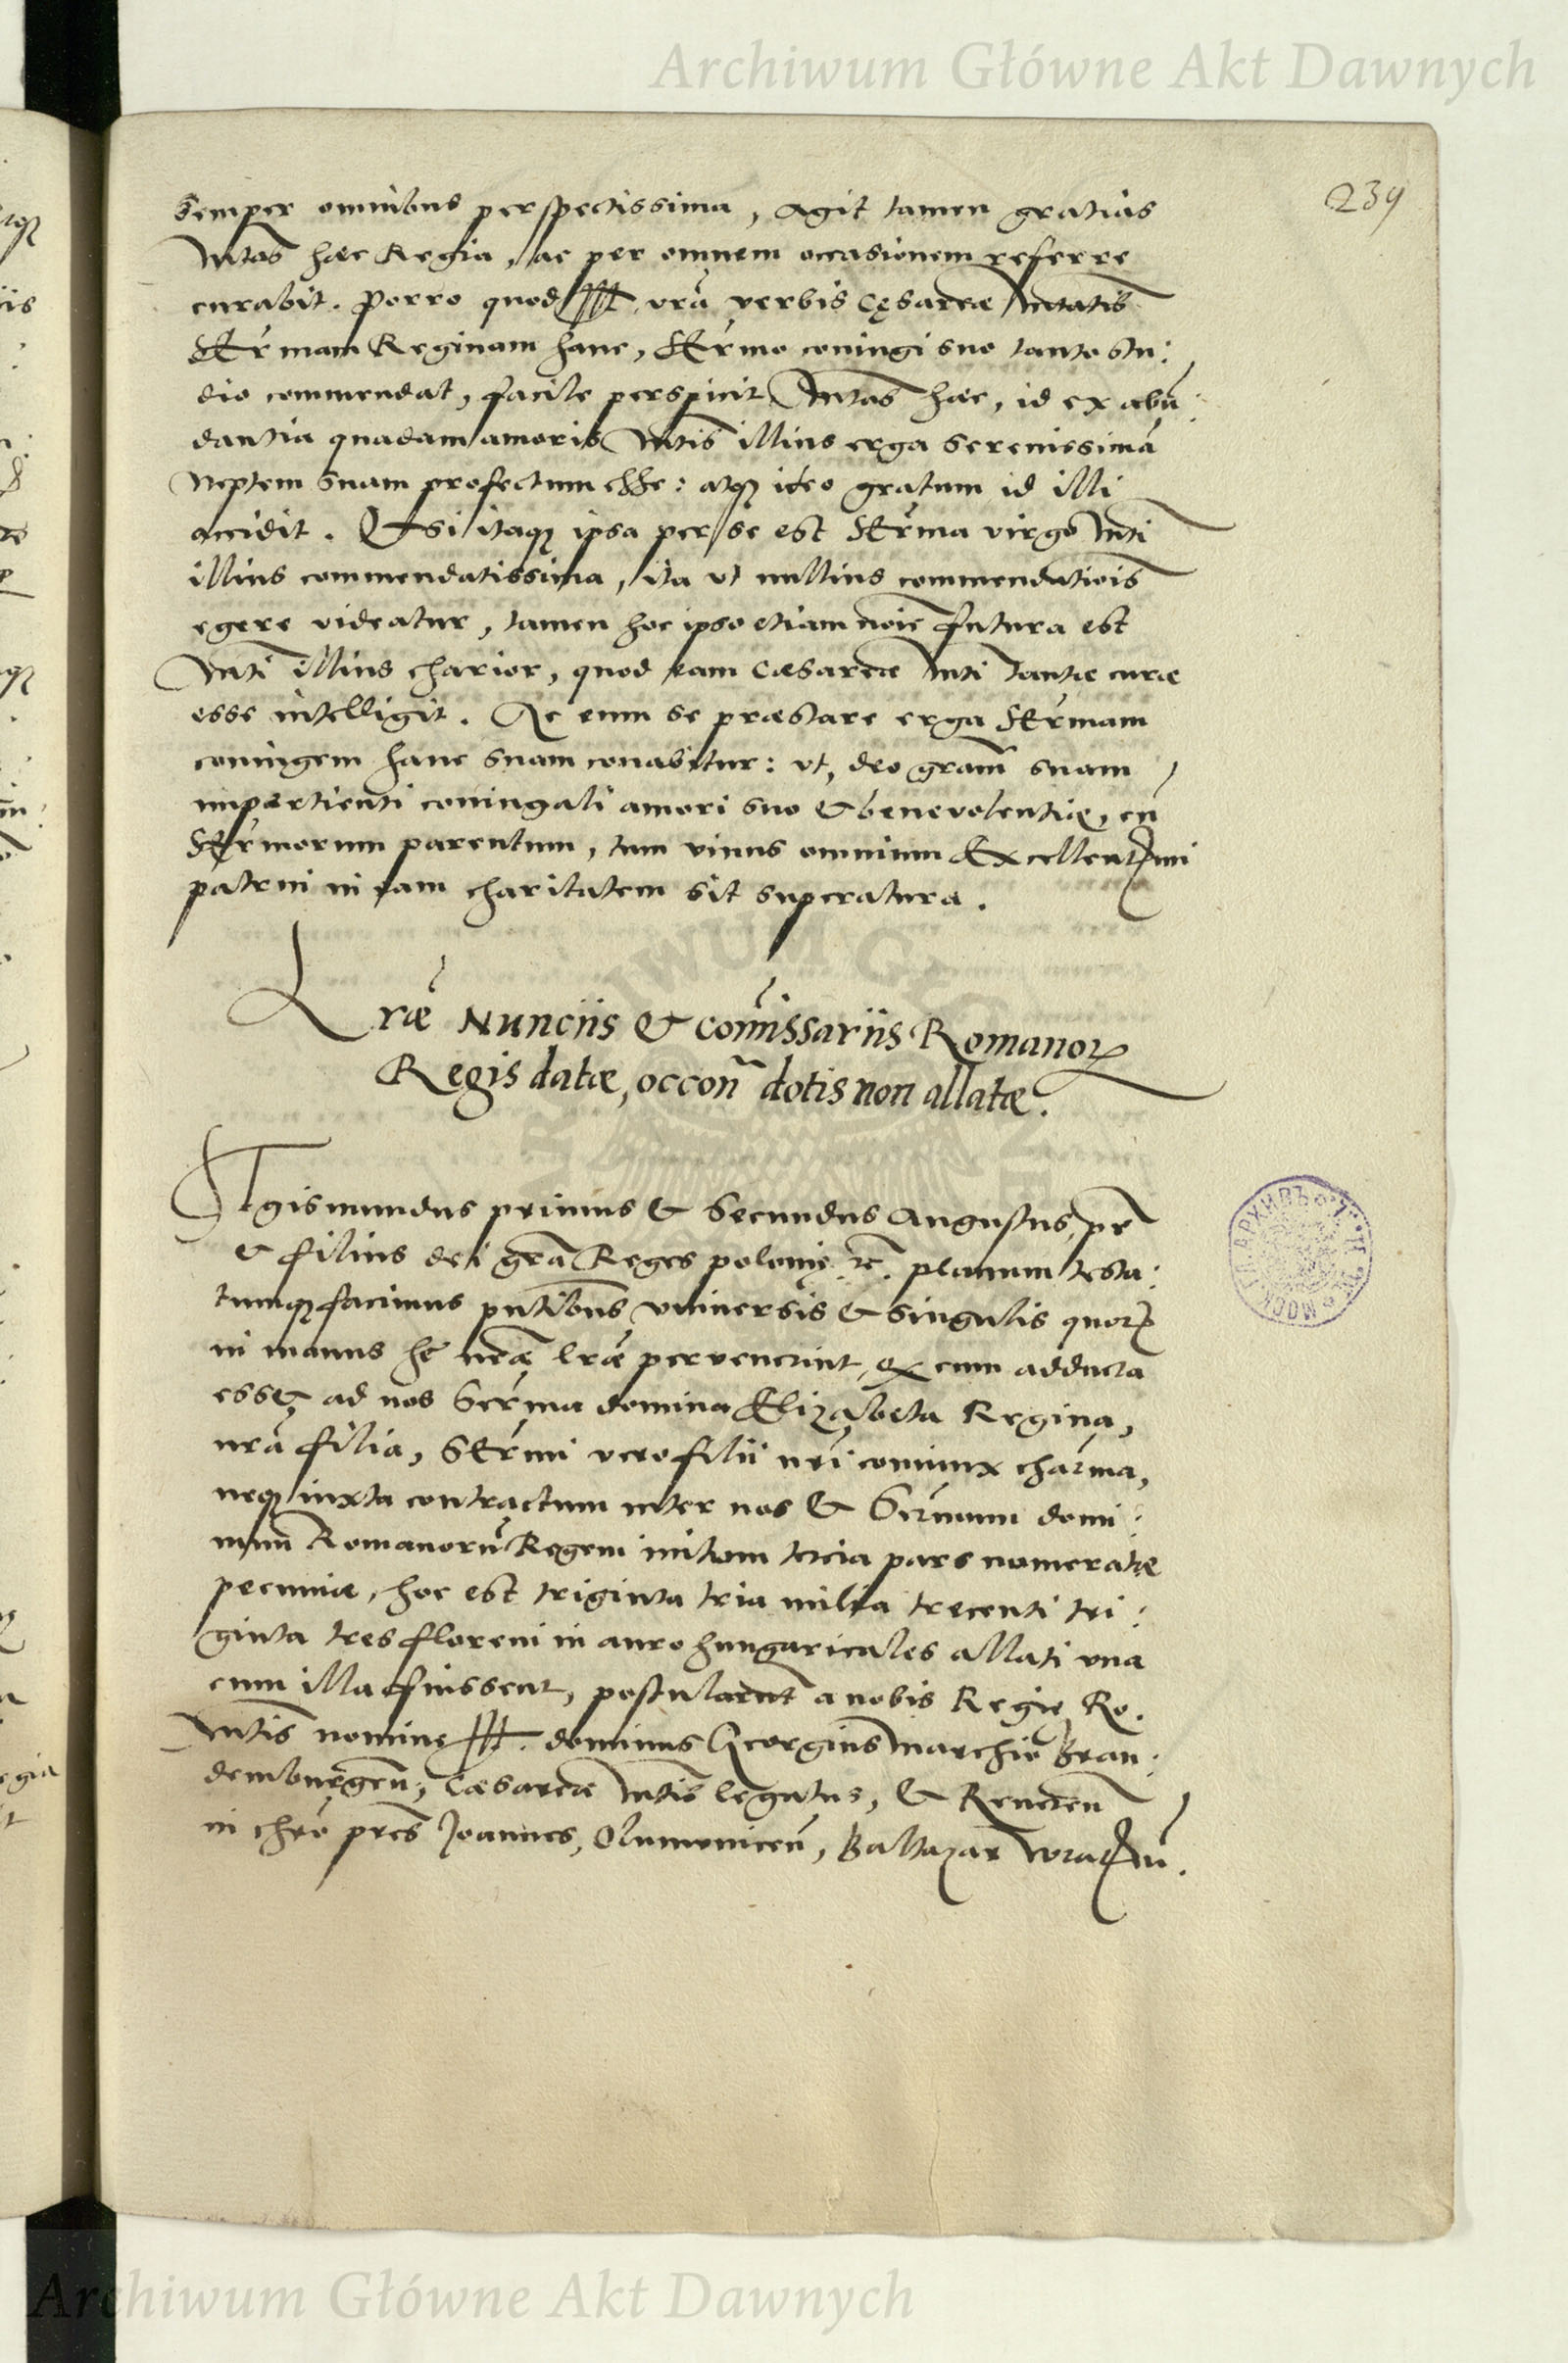 Archiwum Główne Akt Dawnych
239
semper omnibus perspectissima, agit tamen gratias
Mtas haec Regia, ac per omnem occasionem referre
curabit. Porro quod Ill. vrã verbis Cęsareae Mtatis
SErmam Reginam hanc, SErmo coniugi suo tanto stu:
dio commendat, facile perspicit Mtas haec, id ex abũ:
dantia quadam amoris Mtis illius erga serenissimã
Neptem suam profectum esse: atq ideo gratum id illi
accidit. Etsi itaq ipsa per se est SErma virgo Mti
illius commendatissima, ita vt nullius commendatiois
egere videatur, tamen hoc ipso etiam noie futura est
Mti illius charior, quod eam Caesareae Mti tantae curae
esse intelligit. Ac eum se praestare erga SErmam
coniugem hanc suam conabitur: vt, deo gram suam
impartienti coniugali amori suo & benevolentiae, cũ
SErmorum parentum, tum vnius omnium Excellentmi
patrui in eam charitatem sit superatura.
Lrae Nunciis & comissariis Romanor
Regis datae, occon dotis non allatae.
Sigismundus primus & Secundus Augustus, pr
& filius dei gra Reges polonię rc. planum testa:
tumq facimus pntibus vniversis & singulis quor
in manus he nrae lrae pervenerint, q cum adducta
esset ad nos Serma domina Elizabeta Regina,
nra filia, SErmi vero filii nri coniunx charma,
neq iuxta contractum inter nos & Sermum domi:
num Romanorũ Regem initum tercia pars numeratae
pecuniae, hoc est triginta tria milia trecenti tri:
ginta tres floreni in auro hungaricales allati vna
cum illa fuissent, postularunt a nobis Regię Ro.
Mtis nomine Ill. dominus Georgius Marchio Bran:
demburgen, Caesareae Mtis legatus, & Reveren
in chro pres Joannes, Olumucen, Baltazar Wratm.
Archiwum Główne Akt Dawnych